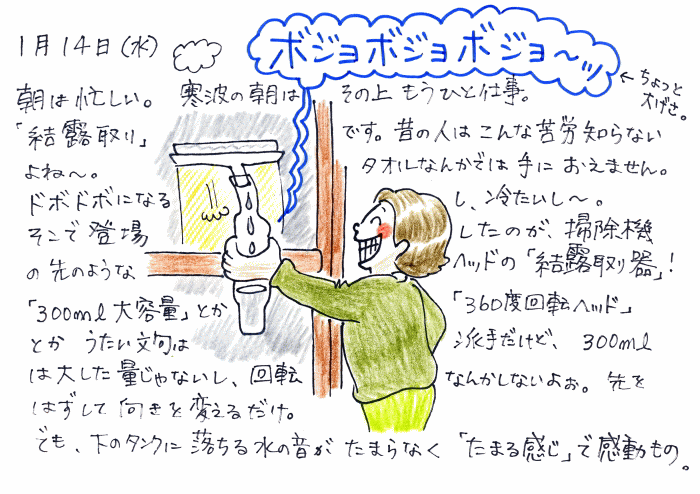 1月14日(水)
ボジョボジョボジョ〜ッ
←ちょっと
大げさ。
朝は忙しい。 寒波の朝は その上 もうひと仕事。
「結露取り」 です。昔の人は こんな苦労知らない
よね〜。 タオルなんかでは 手に おえません。
ドボドボになる し、冷たいし〜。
そこで 登場 したのが、掃除機
の 先のような ヘッドの「結露取り器」!
「300ml 大容量」とか 「360度回転ヘッド」
とか うたい文句は 派手だけど、 300ml
は大した量じゃないし、回転 なんかしないよぉ。 先を
はずして 向きを 変えるだけ。
でも、下のタンクに 落ちる 水の音が たまらなく 「たまる感じ」で 感動もの。